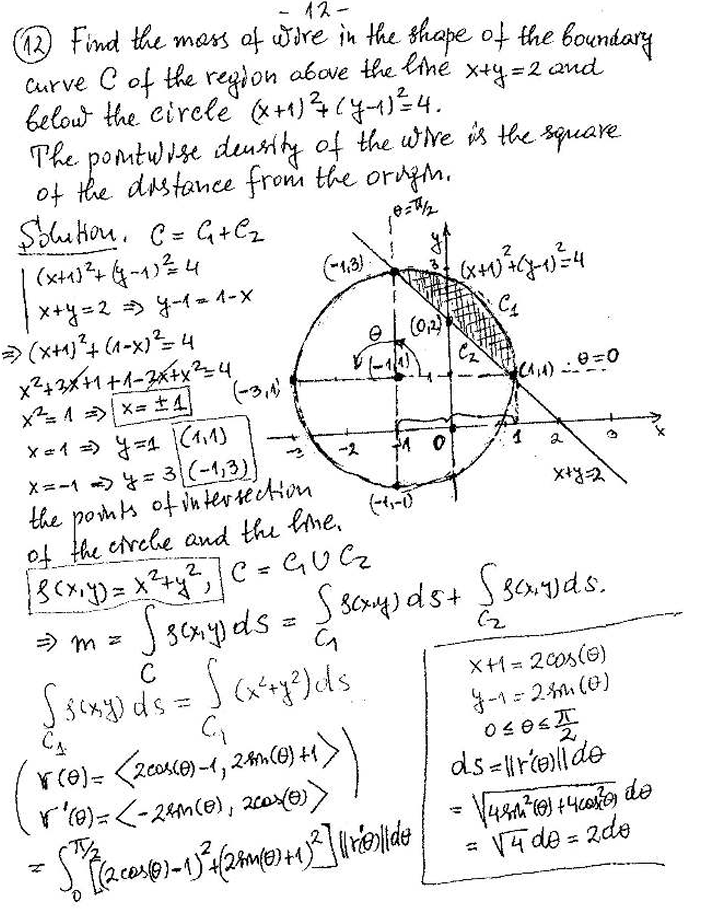 - 12 -
(12) Find the mass of wire in the shape of the boundary
curve C of the region above the line x+y=2 and
below the circle (x+1)²+(y-1)²=4.
The pointwise density of the wire is the square
of the distance from the origin.
Solution. C = C₁+C₂
(x+1)²+(y-1)²=4
x+y=2 ⇒ y-1=1-x
⇒ (x+1)²+(1-x)²=4
x²+2x+1+1-2x+x²=4
x²=1 ⇒ x=±1
x=1 ⇒ y=1 (1,1)
x=-1 ⇒ y=3 (-1,3)
the points of intersection
of the circle and the line.
θ=π/2
y
(-1,3)
3
(x+1)²+(y-1)²=4
C₁
(0,2)
θ
C₂
(-1,1)
1
(1,1)
θ=0
(-3,1)
-3 -2 -1 0 1 2 3 x
(-1,-1)
x+y=2
ρ(x,y)=x²+y², C = C₁∪C₂
⇒ m = ∫_C ρ(x,y) ds = ∫_C₁ ρ(x,y) ds + ∫_C₂ ρ(x,y) ds.
∫_C₁ ρ(x,y) ds = ∫_C₁ (x²+y²) ds
r(θ) = <2cos(θ)-1, 2sin(θ)+1>
r'(θ) = <-2sin(θ), 2cos(θ)>
= ∫₀^π/2 [(2cos(θ)-1)²+(2sin(θ)+1)²] ||r'(θ)|| dθ
x+1=2cos(θ)
y-1=2sin(θ)
0≤θ≤π/2
ds=||r'(θ)||dθ
= √4sin²(θ)+4cos²(θ) dθ
= √4 dθ = 2dθ